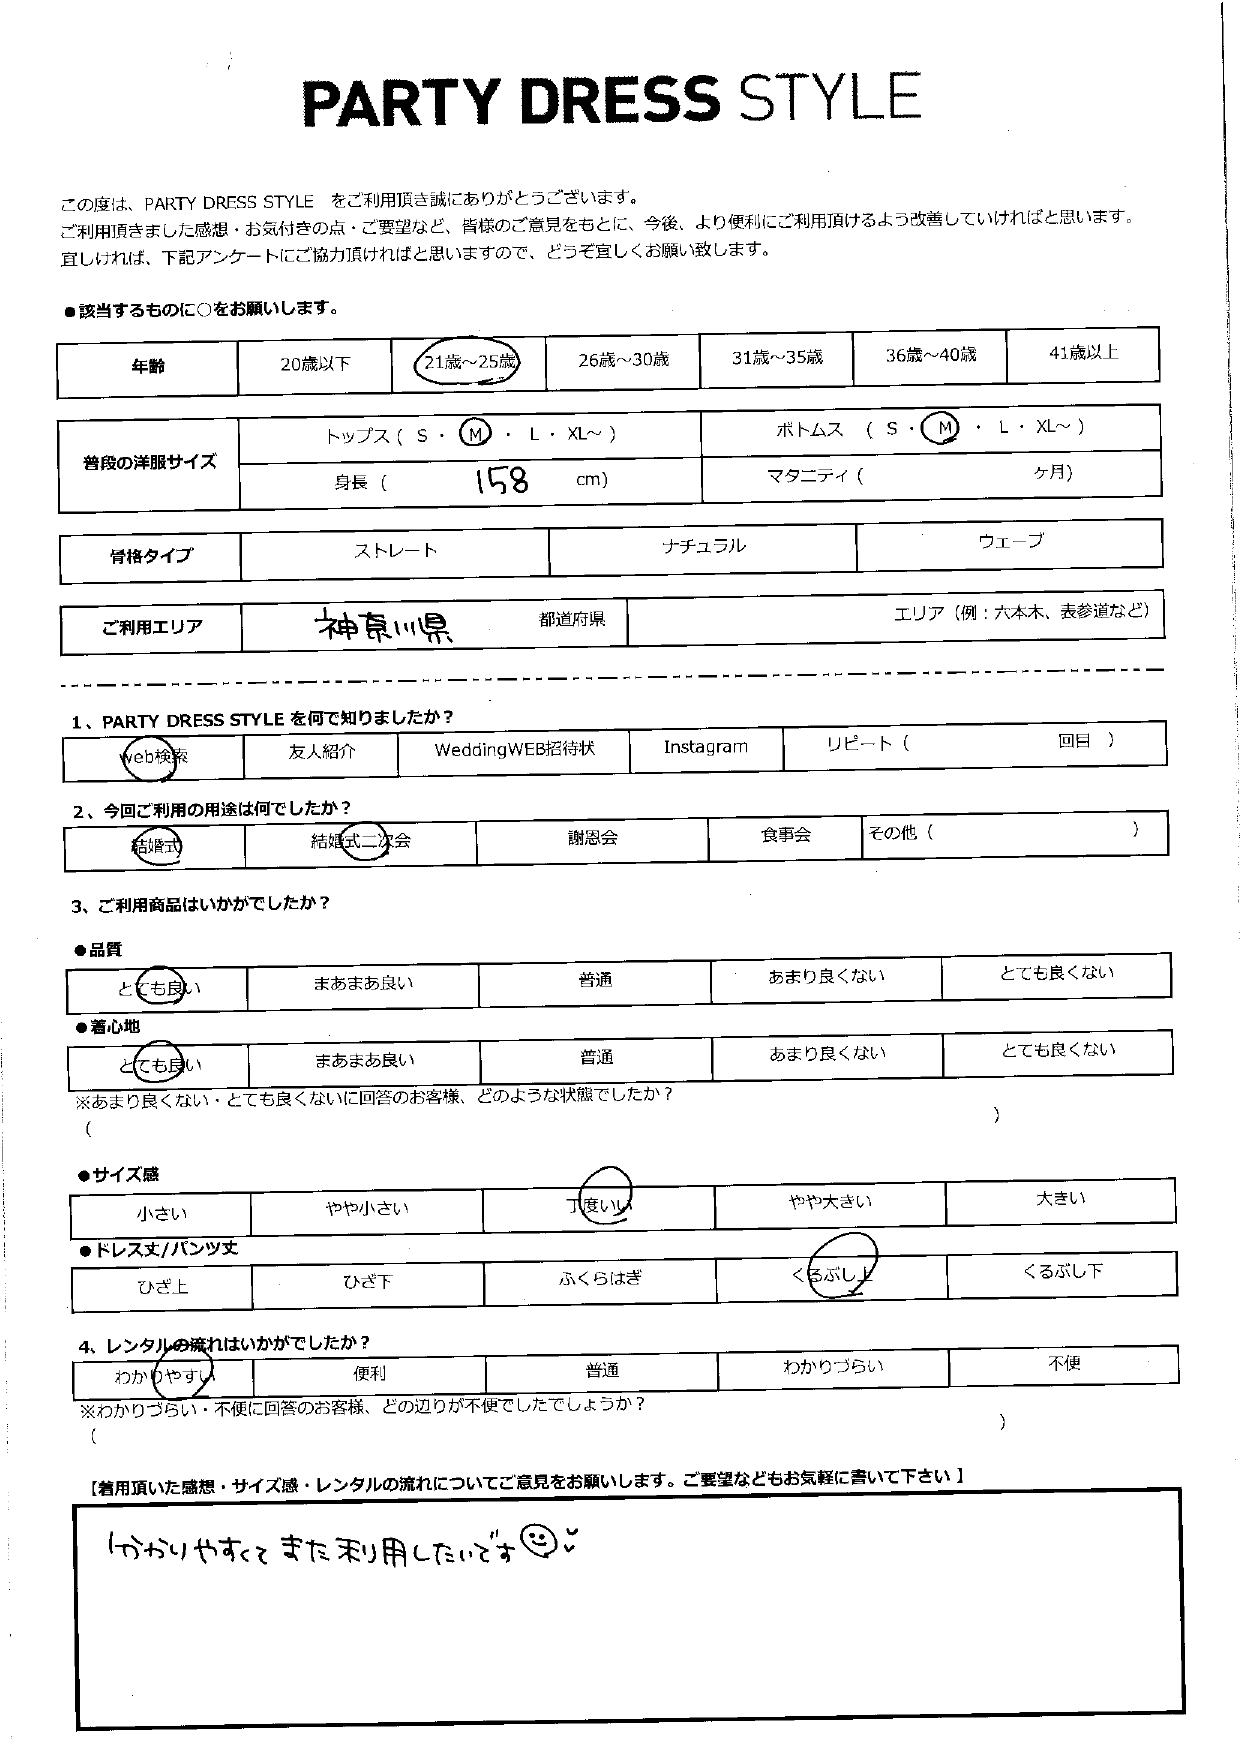 PARTY DRESS STYLE
この度は、PARTY DRESS STYLE をご利用頂き誠にありがとうございます。
ご利用頂きました感想・お気付きの点・ご要望など、皆様のご意見をもとに、今後、より便利にご利用頂けるよう改善していければと思います。
宜しければ、下記アンケートにご協力頂ければと思いますので、どうぞ宜しくお願い致します。
●該当するものに○をお願いします。
年齢 20歳以下 21歳～25歳 26歳～30歳 31歳～35歳 36歳～40歳 41歳以上
普段の洋服サイズ
トップス ( S ・ M ・ L ・ XL～ ) ボトムス ( S ・ M ・ L ・ XL～ )
身長 ( 158 cm) マタニティ ( ケ月)
骨格タイプ ストレート ナチュラル ウェーブ
ご利用エリア 神奈川県 都道府県 エリア（例：六本木、表参道など）
1、PARTY DRESS STYLE を何で知りましたか？
web検索 友人紹介 WeddingWEB招待状 Instagram リピート ( 回目 )
2、今回ご利用の用途は何でしたか？
結婚式 結婚式二次会 謝恩会 食事会 その他 ( )
3、ご利用商品はいかがでしたか？
●品質
とても良い まあまあ良い 普通 あまり良くない とても良くない
●着心地
とても良い まあまあ良い 普通 あまり良くない とても良くない
※あまり良くない・とても良くないに回答のお客様、どのような状態でしたか？
( )
●サイズ感
小さい やや小さい 丁度いい やや大きい 大きい
●ドレス丈/パンツ丈
ひざ上 ひざ下 ふくらはぎ くるぶし上 くるぶし下
4、レンタルの流れはいかがでしたか？
わかりやすい 便利 普通 わかりづらい 不便
※わかりづらい・不便に回答のお客様、どの辺りが不便でしたでしょうか？
( )
【着用頂いた感想・サイズ感・レンタルの流れについてご意見をお願いします。ご要望などもお気軽に書いて下さい 】
わかりやすくてまた利用したいです